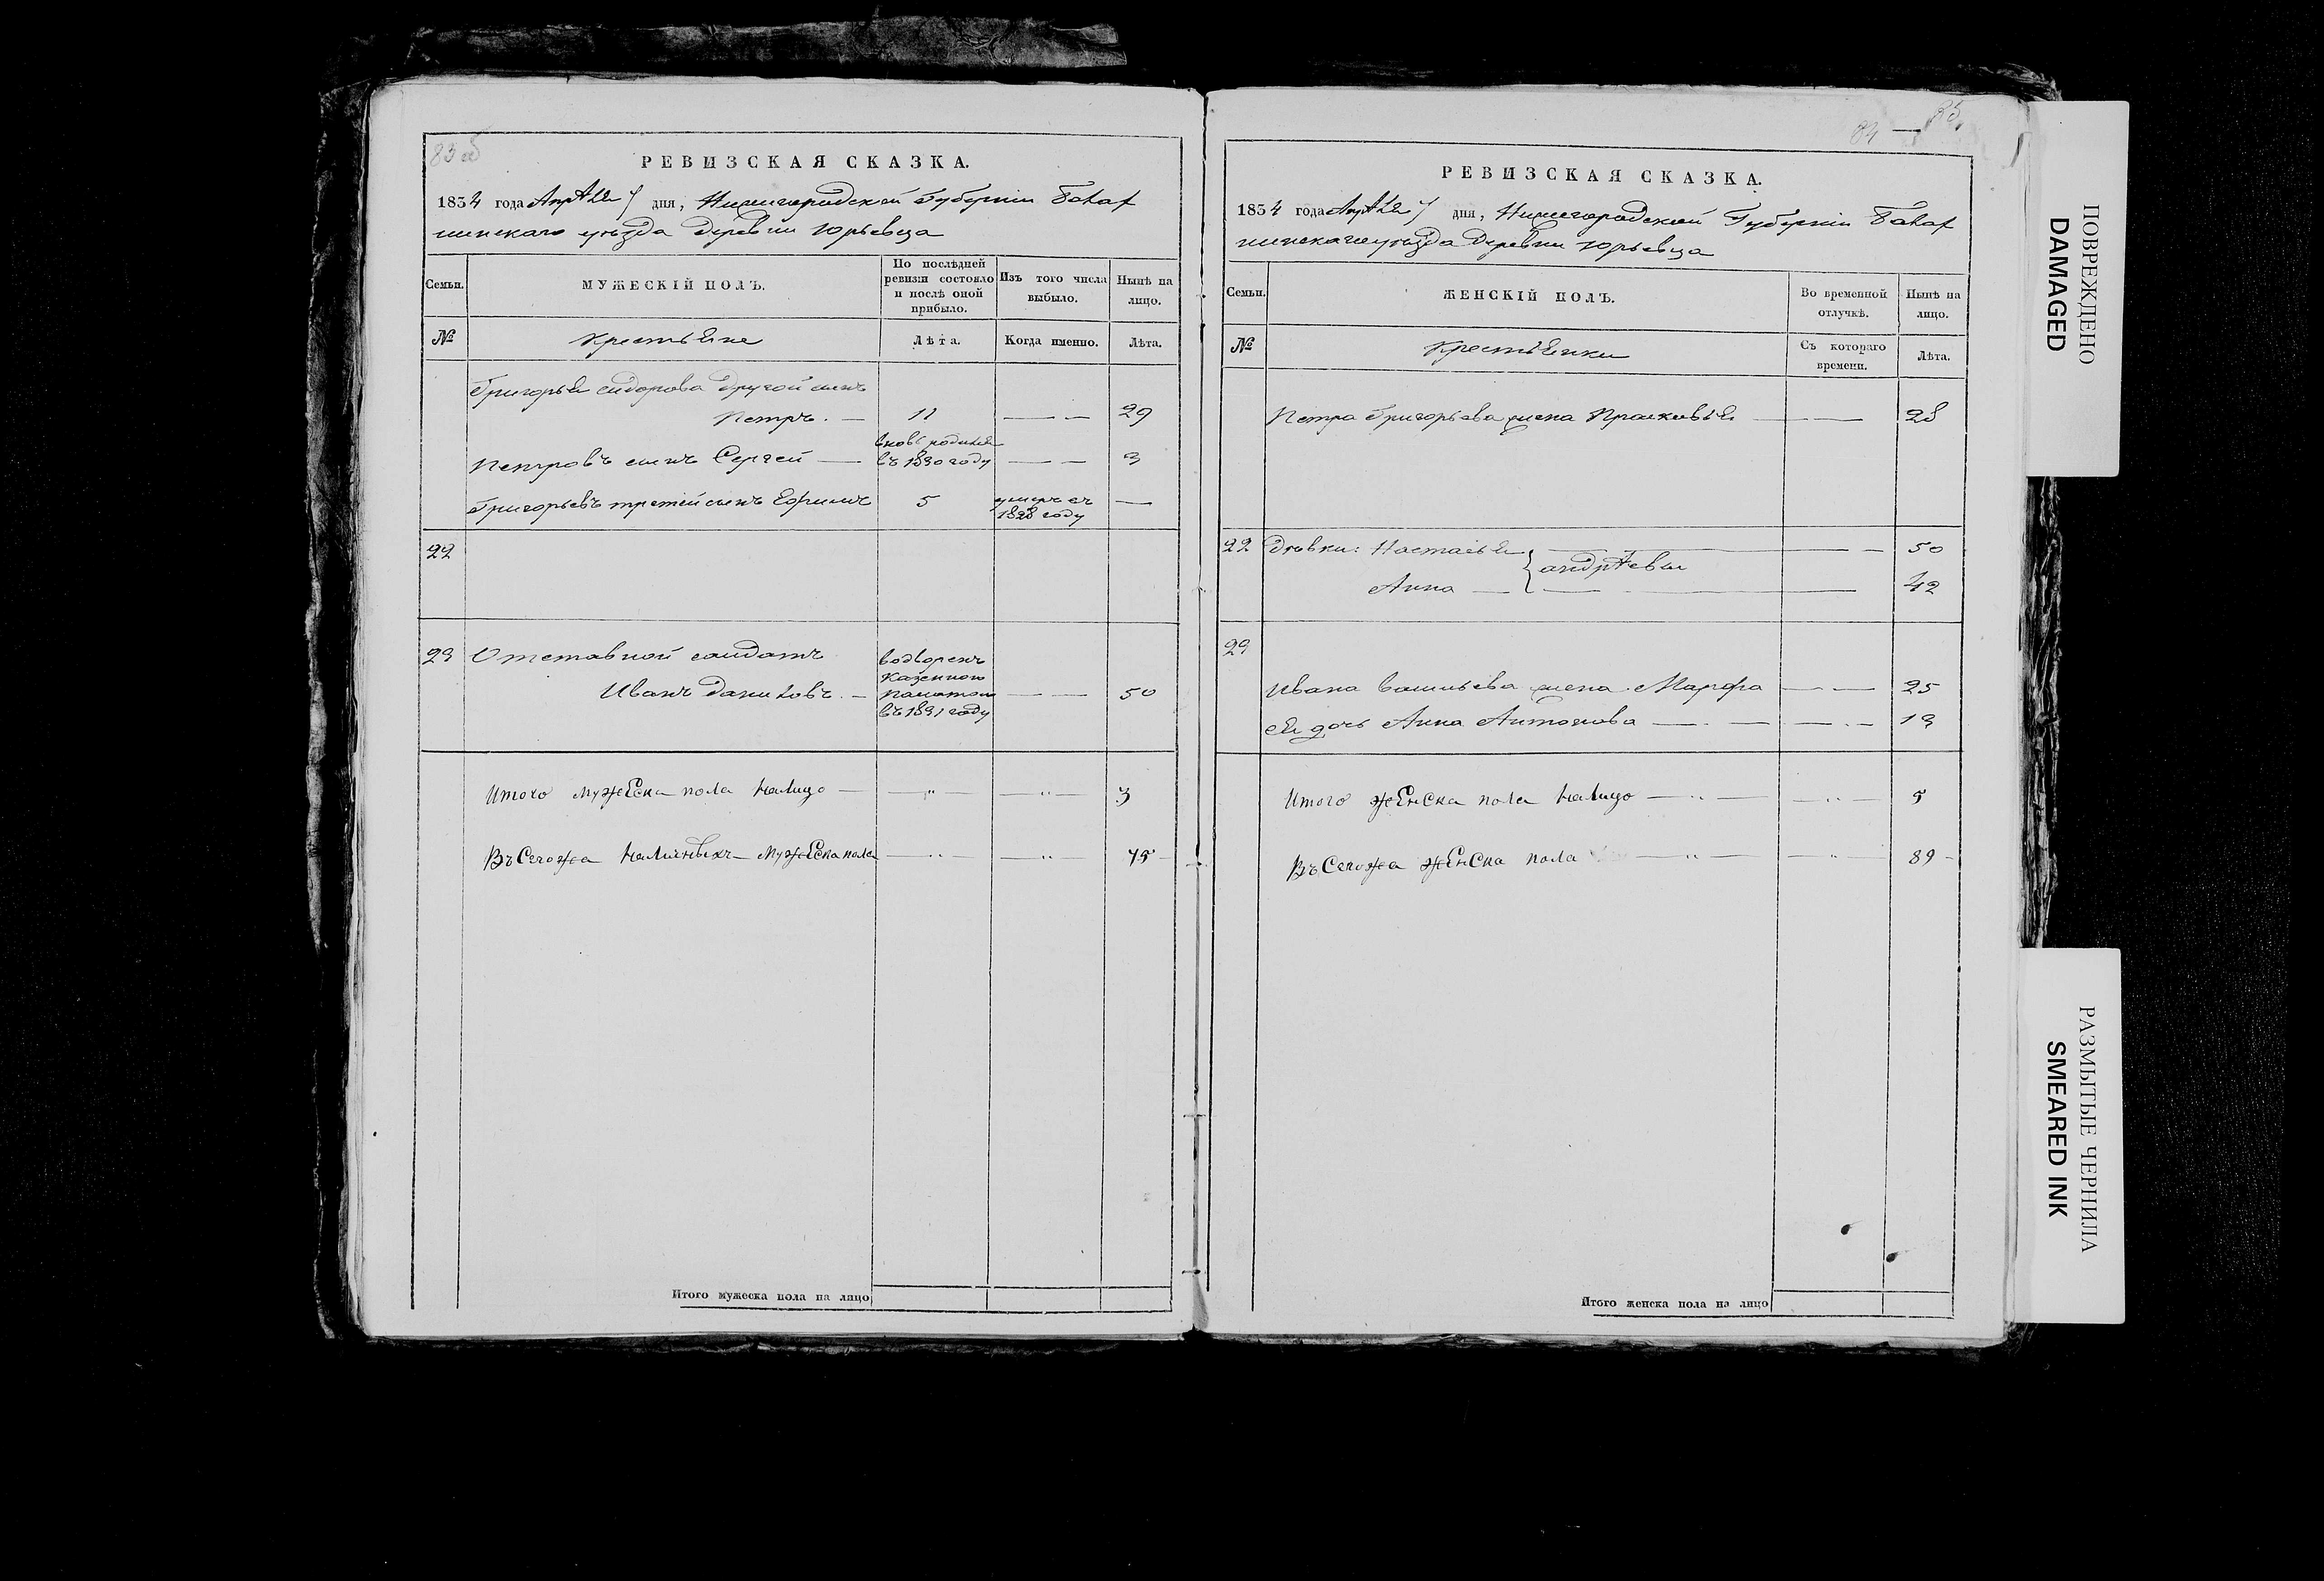 83 об
РЕВИЗСКАЯ СКАЗКА.
1834 года Апрѣля 7 дня, Нижегородской Губерніи Балах
нинскаго уѣзда Деревни Юрьевца
Семьи.
МУЖЕСКІЙ ПОЛЪ.
По послѣдней ревизіи состояло и послѣ оной прибыло.
Изъ того числа выбыло.
Нынѣ на лицо.
№
Крестьяне
Лѣта.
Когда именно.
Лѣта.
Григорья Сидорова другой сынъ
Петръ. — 11 — — 29
Петровъ сынъ Сергей — вновь родился въ 1830 году — — 3
Григорьевъ третей сынъ Ефимъ 5 умеръ въ 1828 году —
22
23 Отставной солдатъ
Иванъ Даниловъ. — водворенъ казенною палатою въ 1831 году — — 50
Итого мужеска пола налицо — — „ — — „ — 3
Въсегожа наличныхъ мужеска пола — „ — — „ — 75
Итого мужеска пола на лицо
84 — 85
РЕВИЗСКАЯ СКАЗКА.
1834 года Апрѣля 7 дня, Нижегородской Губерніи Балах
нинскаго уѣзда Деревни Юрьевца
Семьи.
ЖЕНСКІЙ ПОЛЪ.
Во временной отлучкѣ.
Нынѣ на лицо.
№
Крестьянки
Съ котораго времени.
Лѣта.
Петра Григорьева жена Прасковья — — — 28
22 Дѣвки: Настасья — — — 50
Андрѣевы
Анна — — — 42
23
Ивана Васильева жена Марфа — — — 25
ея дочь Анна Антонова — — — — 13
Итого женска пола налицо — „ — — „ — 5
Въсегожа женска пола — „ — — „ — 89
Итого женска пола на лицо
ПОВРЕЖДЕНО
DAMAGED
РАЗМЫТЫЕ ЧЕРНИЛА
SMEARED INK